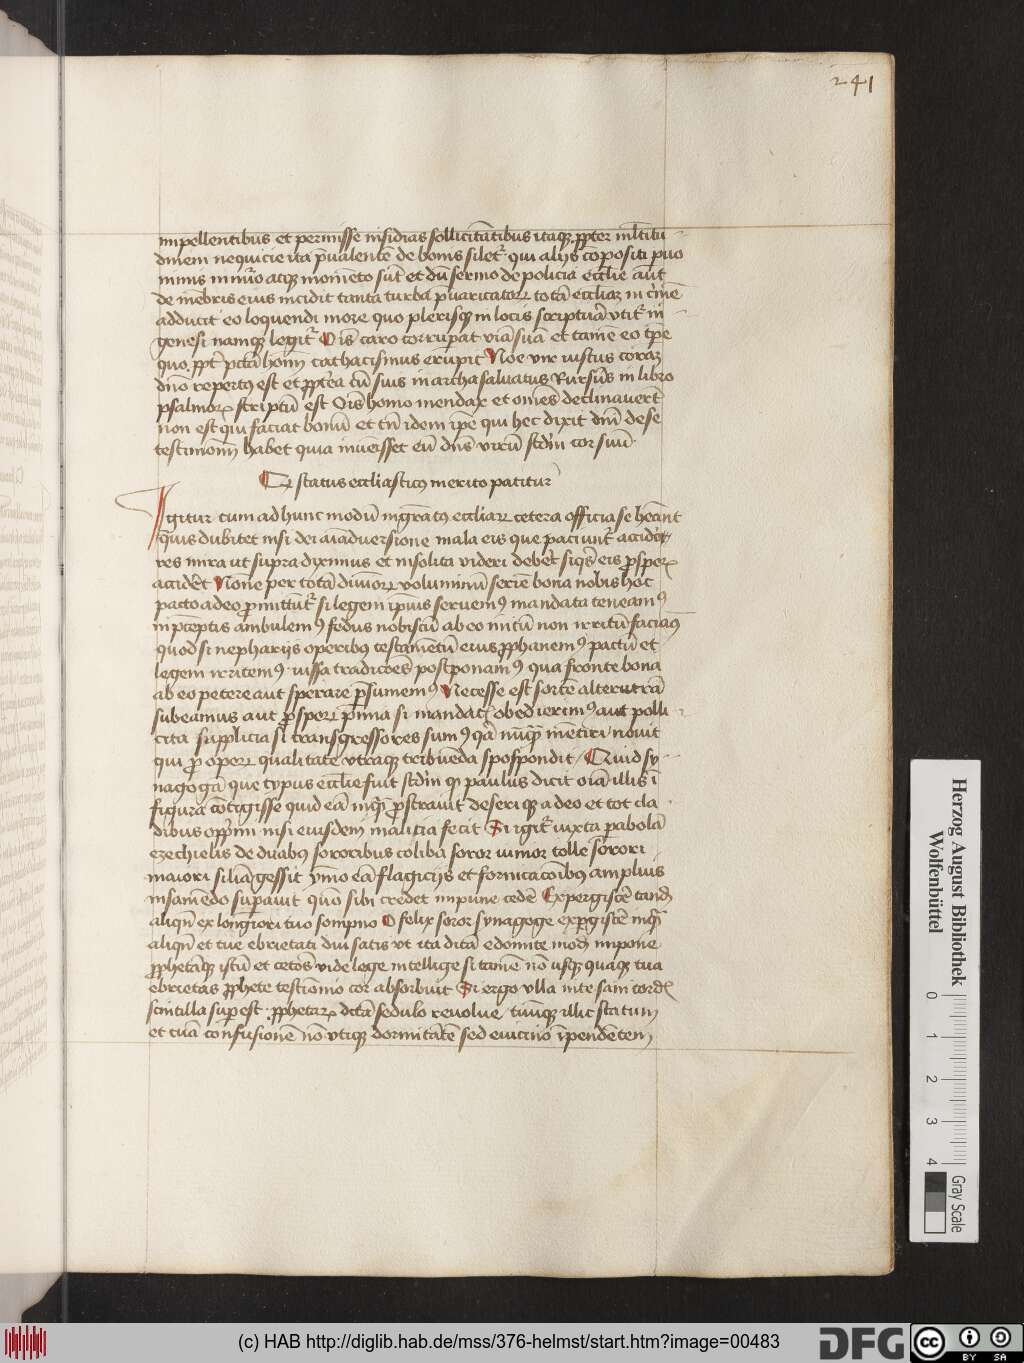 241
impellentibus et permisse insidias sollicitātibus itaqꝫ ꝓpter ml̄titu
dinem nequicie ita p̄ualentē de bonis siletᷣ qui alijs cōpositi puo
minis in nūo atqꝫ momēto sūt et dū sermo de policia eccl̄ie aut
de mēbris eius incidit tanta turba p̄uaricatorꝝ totā eccl̄iaꝫ in c'mē
adducit eo loquendi more quo plerisqꝫ in locis scripturā vtitᷣ in
genesi namqꝫ legitᷣ Oīs caro corrupat viā suā et tamē eo tp̄e
quo ꝓpt' pctā homīꝫ cathacismus erupit Noe vir iustus coraꝫ
dn̄o repertꝰ est et ꝓpt'ea cū suis in archa saluatus Rursūs in libro
psalmorꝝ scriptū est Oīs homo mendax et om̄es declinauer̄t
non est qui faciat bonū et tn̄ idem ip̄e qui hec dixit dn̄m dese
testimoniū habet quia inuēisset eū dn̄s virū scd̄m cor suū
Qꝫ status eccl̄iasticꝰ merito patitur
Igitur cum ad hunc modū ingratꝰ eccl̄iarꝝ cetera officia se heānt
quis dubitet nisi dei aīaduersione mala eis que paciūtᷣ accid'e
res mira ut supra dyximus et insolita videri debet siqꝫ eis ꝓsperꝝ
accid'et None per totā diuīorꝝ voluminū seriē bona nobis hoc
pacto adeo ꝓmittūtᷣ si legem ip̄ius seruemꝰ mandata teneamꝰ
in p̄ceptis ambulemꝰ fedus nobiscū ab eo initū non irritū faciaꝰ
quod si nepharijs operibꝰ testamētū eius ꝓphanemꝰ pactū et
legem irritemꝰ iussa tradicōes postponamꝰ qua fronte bona
ab eo petere aut sperare p̄sumemꝰ Necesse est sorte alterutrā
subeamus aut ꝓsperꝝ p̄mia si mandatꝭ obedierimꝰ aut polli
cita supplicia si transgressores sumꝰ qā nūqꝫ mētiri nouit
qui ꝓ operꝝ qualitate vtraqꝫ tribuēda spospondit Quid sy
nagogā que typus eccl̄ie fuit scd̄m qꝫ paulus dicit oīa illis ī
figura cōtigisse quid eā inqꝫ ꝓstrauit deseriqꝫ adeo et tot cla
dibus opp̄mi nisi eiusdem malicia fecit Si igitᷣ iuxta parabolā
ezechielis de duabꝰ sororibus coliba soror iunior tolle sorori
maiori silia gessit ymo eā flagicijs et fornicacōibꝰ amplius
insaniēdo suꝑauit quō sibi credet impune cede Expergiscē tandē
aliqn̄ ex longiori tuo sompno O felix soror synagoge exp̄giscē inqꝫ
aliqn̄ et tue ebrietati diu satis ut ita dicā edomite modū impone
ꝓphetāqꝫ istū et cetos vide lege intellige si tamē nō usqꝫ quaqꝫ tua
ebrietas ꝓphete testimōio cor absorbuit Si ergo vlla inte sani cordꝭ
scintilla suꝑest ꝓphetarꝝ dicta sedulo reuolue tuūqꝫ illic statum
et tuā confusionē nō vtiqꝫ dormitātē sed euicino īpendētem
Herzog August Bibliothek
Wolfenbüttel
0 1 2 3 4
Gray Scale
(c) HAB http://diglib.hab.de/mss/376-helmst/start.htm?image=00483
DFG
cc BY SA